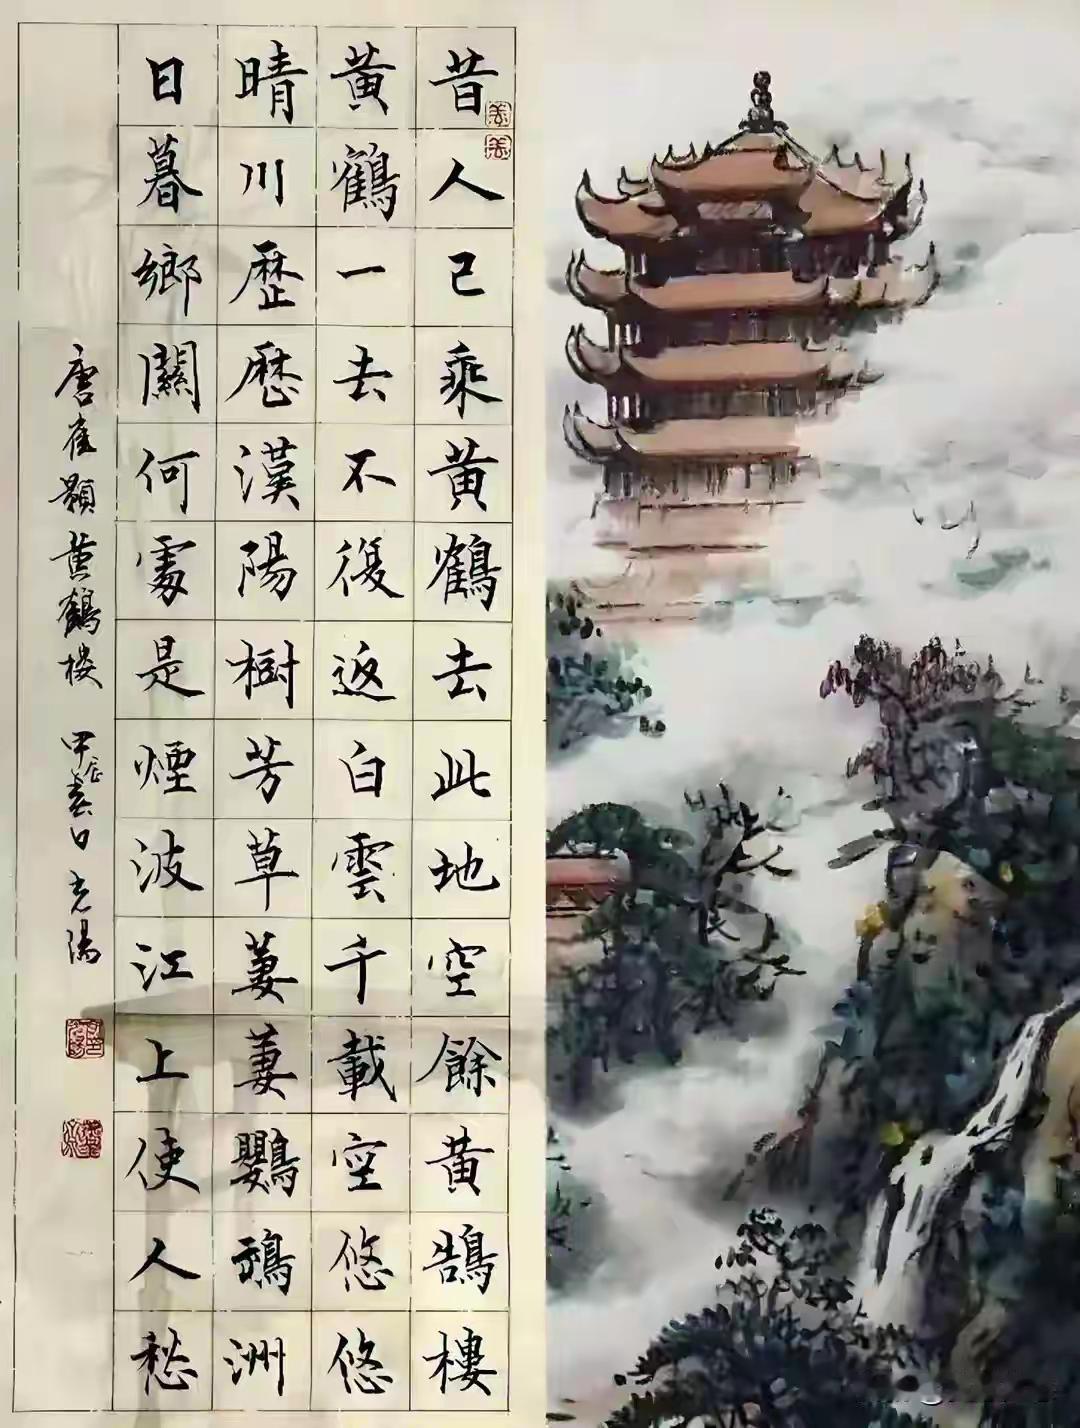 昔人已乘黃鶴去此地空餘黃鵠樓
黃鶴一去不復返白雲千載空悠悠
晴川歷歷漢陽樹芳草萋萋鸚鵡洲
日暮鄉關何處是煙波江上使人愁
唐崔顥黃鶴樓 甲辰春日